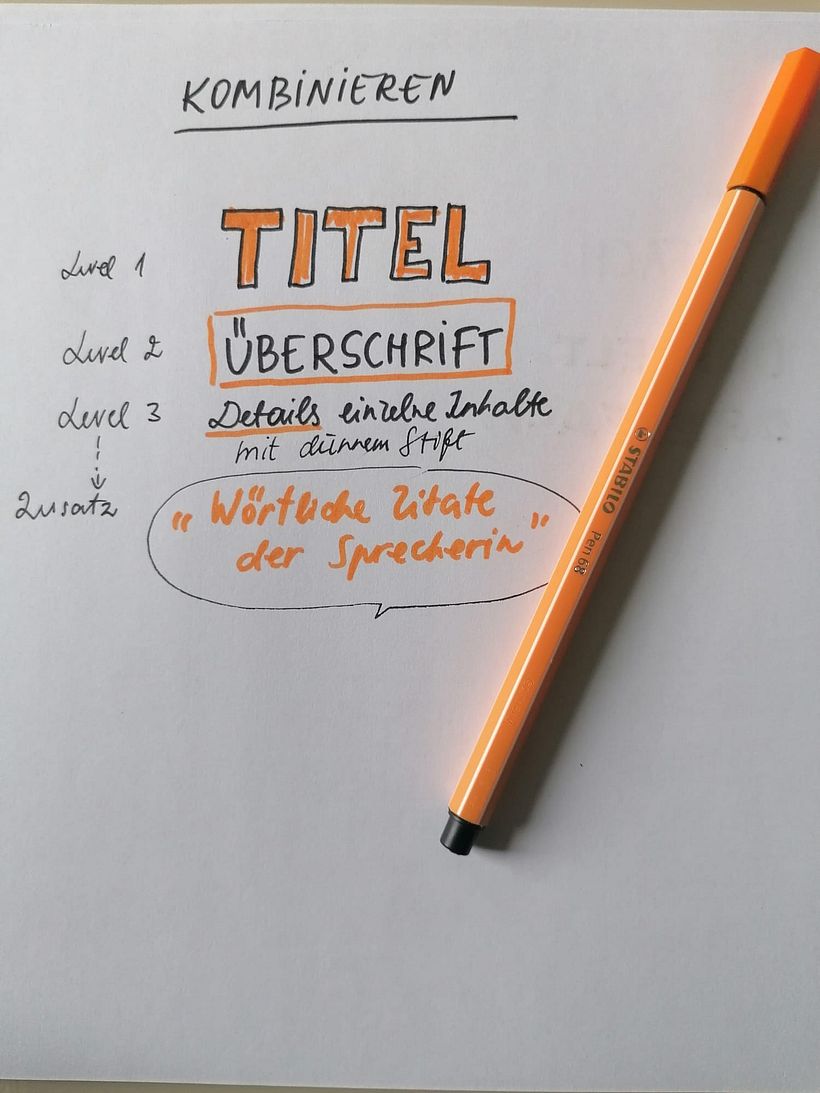 KOMBINIEREN
Level 1 TITEL
Level 2 ÜBERSCHRIFT
Level 3 Details einzelne Inhalte
mit dünnem Stift
Zusatz "Wörtliche Zitate
der Sprecherin"
STABILO Pen 68